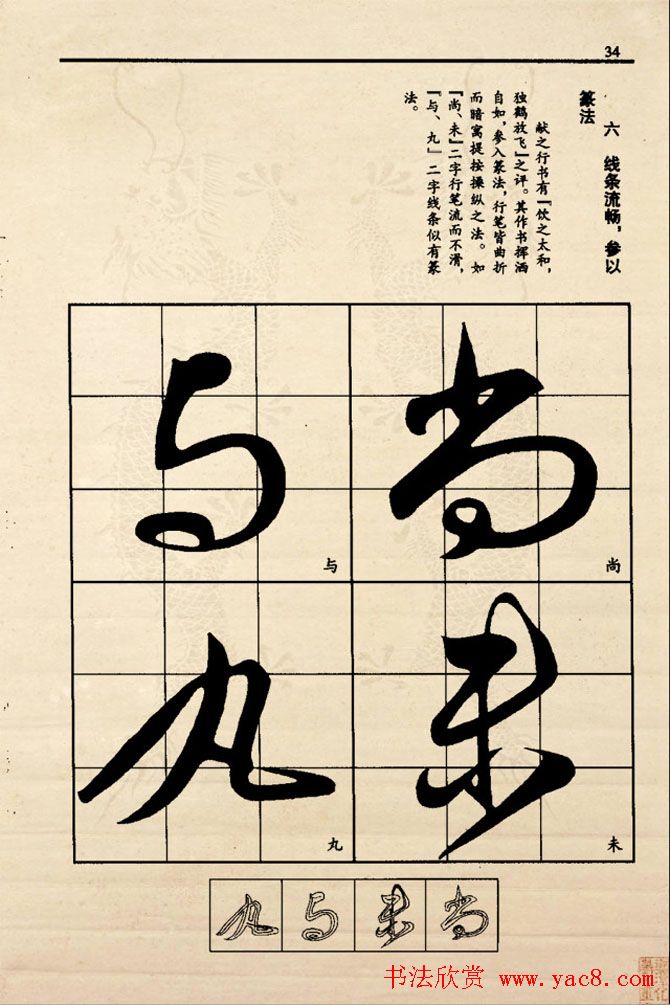 34
六 线条流畅，参以
篆法
献之行书有“饮之太和，
独鹤放飞”之评。其作书挥洒
自如，参入篆法，行笔皆曲折
而暗寓提按操纵之法。如
“尚、未”二字行笔流而不滑，
“与、九”二字线条似有篆
法。
尚
尚
未
未
与
与
丸
丸
尚
未
与
丸
书法欣赏 www.yac8.com